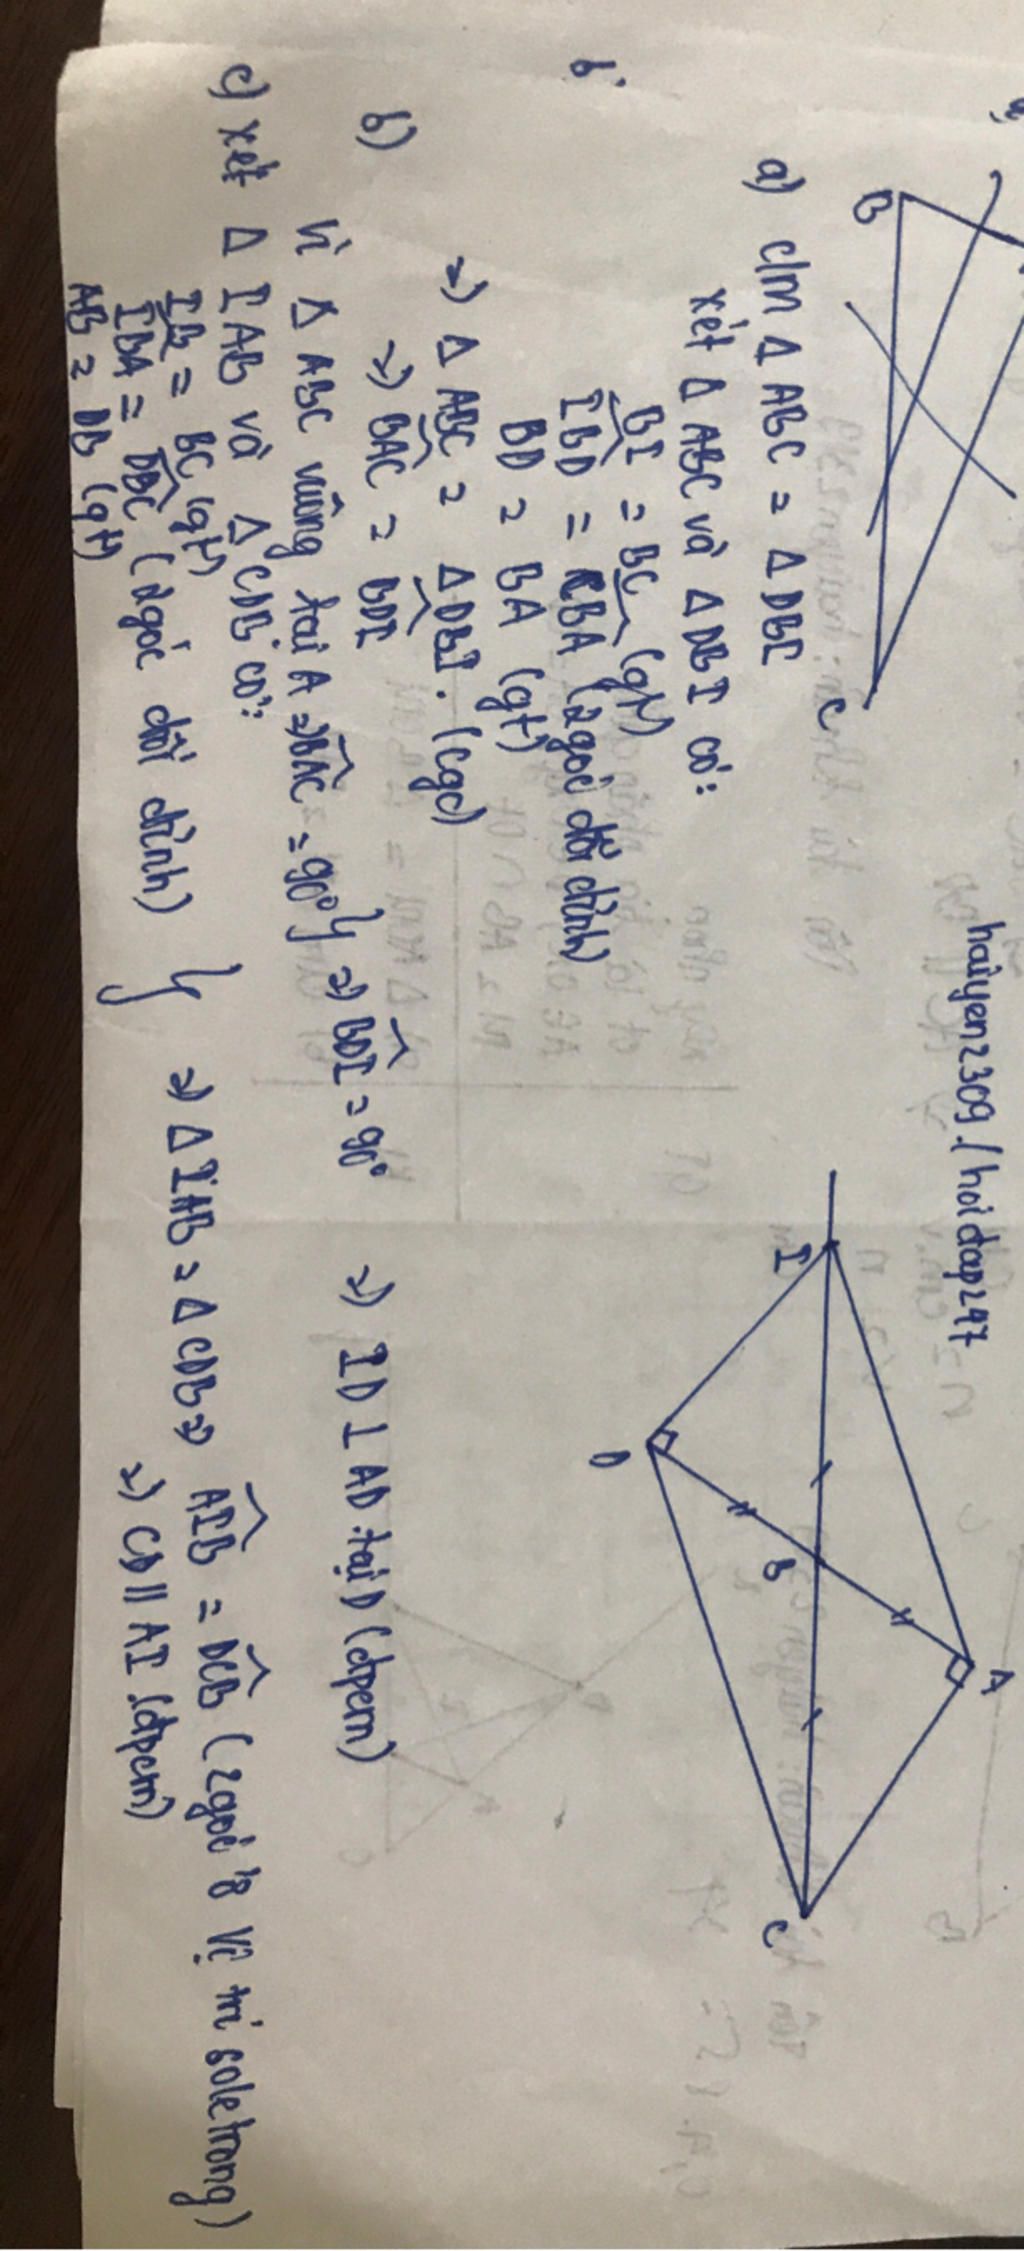 haiyen2309 / hoidap247
B
C
I
D
B
A
C
a) c/m Δ ABC = Δ DBI
xét Δ ABC và Δ DBI có:
BI = BC (gt)
IBD = CBA (2 góc đối đỉnh)
BD = BA (gt)
=) Δ ABC = Δ DBI. (cgc)
b)
=) BAC = BDI
Vì Δ ABC vuông tại A => BAC = 90° } =) BDI = 90° =) ID ⊥ AD tại D (đpcm)
c) xét Δ IAB và Δ CDB có:
IB = BC (gt)
IBA = DBC (2 góc đối đỉnh) }
AB = DB (gt)
=) Δ IAB = Δ CDB => AIB = DCB (2 góc ở vị trí soletrong)
=) CD // AI (đpcm)